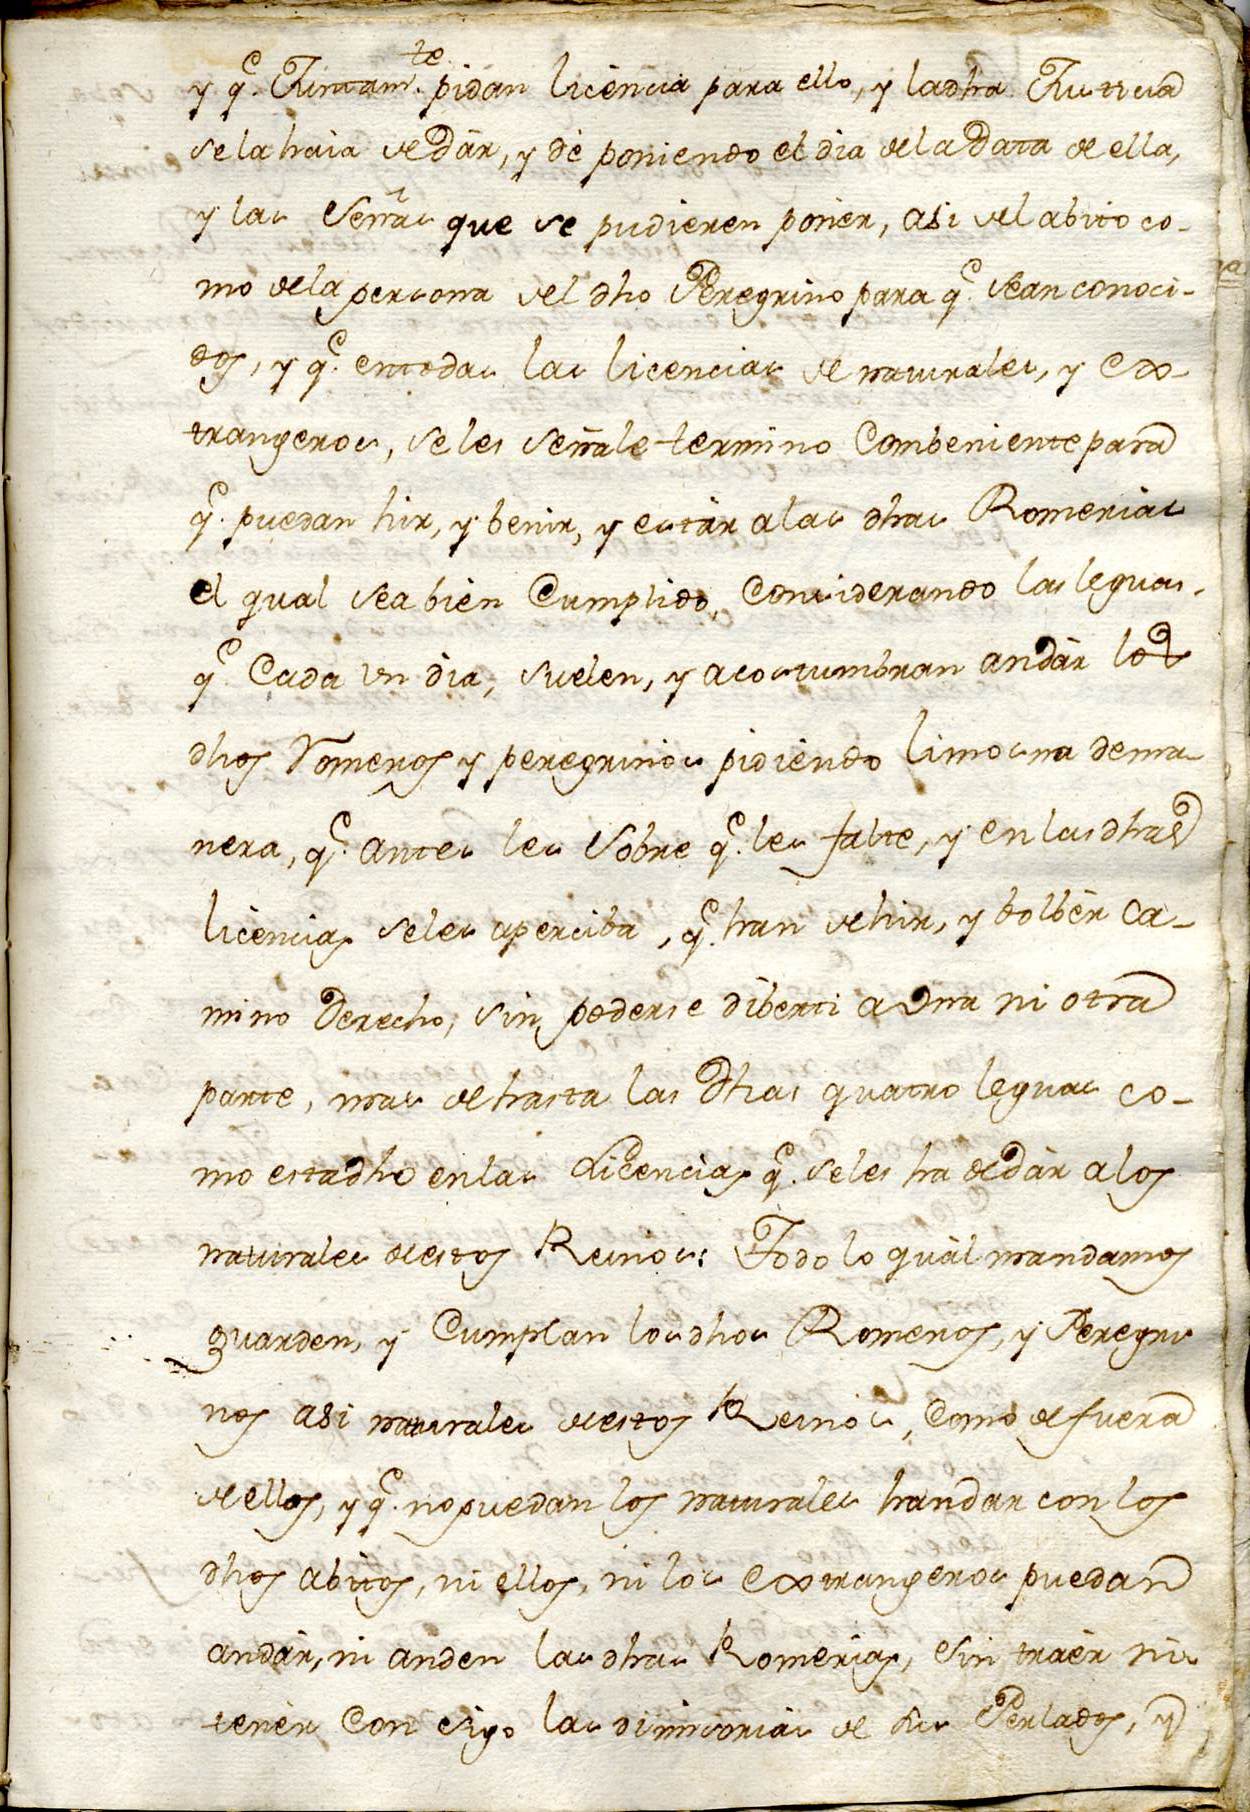 y q.e Juntam.te pidan licencia para ello, y la dha Justicia
se la haia de dár, y dé poniendo el dia de la Data de ella,
y las Señas que se pudieren poner, asi del abito co-
mo de la persona del dho Peregrino para q.e sean conoci-
dos, y q.e en todas las licencias de naturales, y ex-
trangeros, se les señale termino Combeniente para
q.e puedan hir, y benir, y estár a las dhas Romerias
el qual sea bien Cumplido, Considerando las leguas,
q.e Cada un dia, suelen, y acostumbran andár los
dhos Romeros y peregrinos pidiendo limosna de ma-
nera, q.e antes les Sobre q.e les falte, y en las dhas
licencias se les aperciba, q.e han de hir, y bolbér ca-
mino Derecho, sin poderse diberti a una ni otra
parte, mas de hasta las Dhas quatro leguas co-
mo esta dho en las Licencias q.e se les ha de dár a los
naturales de estos Reinos: Todo lo quàl mandamos
guarden, y Cumplan los dhos Romeros, y Peregri
nos asi naturales de estos Reinos, como de fuera
de ellos, y q.e no puedan los naturales handar con los
dhos abitos, ni ellos, ni los extrangeros puedan
andár, ni anden las dhas Romerias, sin traèr ni
tenér con sigo las dimisorias de sus Perlados, y